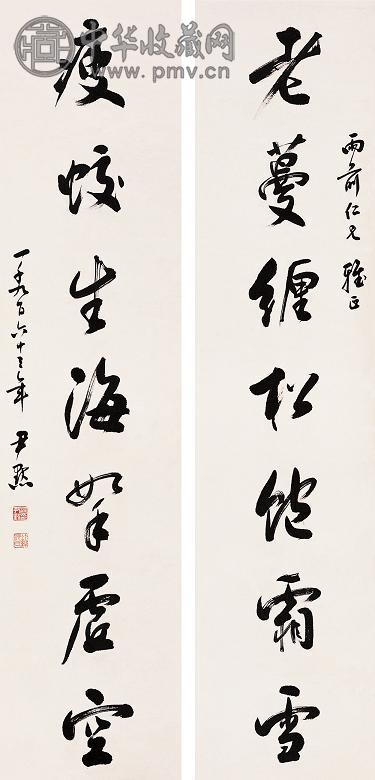 中华收藏网
www.pmv.cn
雨前仁兄雅正
老蔓纏松飽霜雪
瘦蛟生海拏虛空
一千九百六十三年 尹默